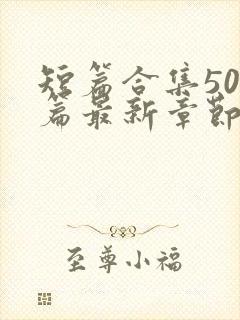 短篇合集50
篇最新章节
至尊小福